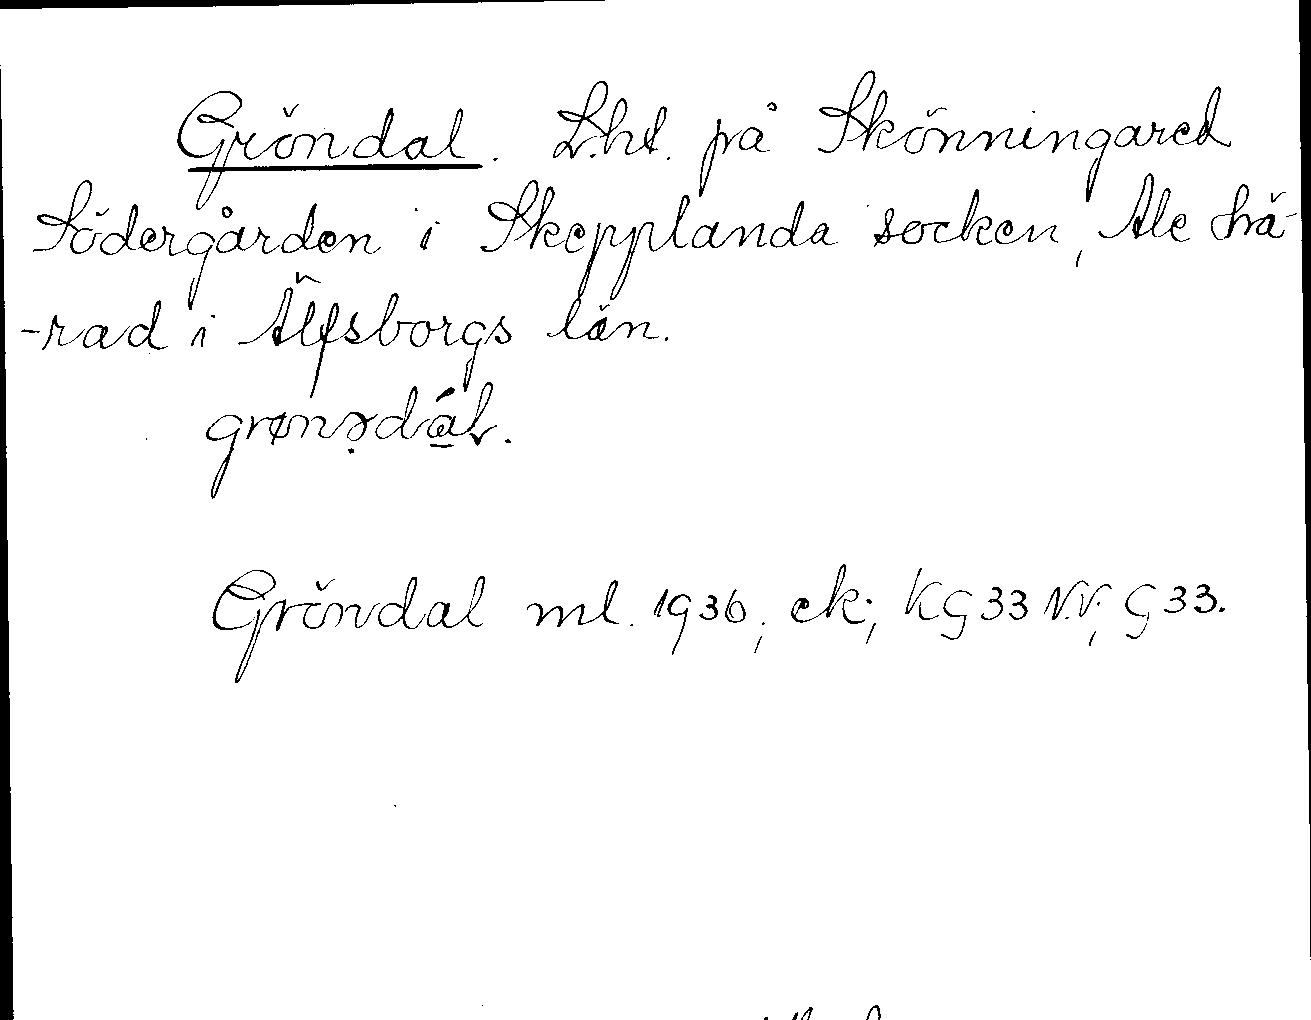 Gröndal. L.ht. på Skönningared
Södergården i Skepplanda socken, Ale hä-
-rad i Älfsborgs län.
Gröndal ml. 1936, ek; KG33 N.V; G33.